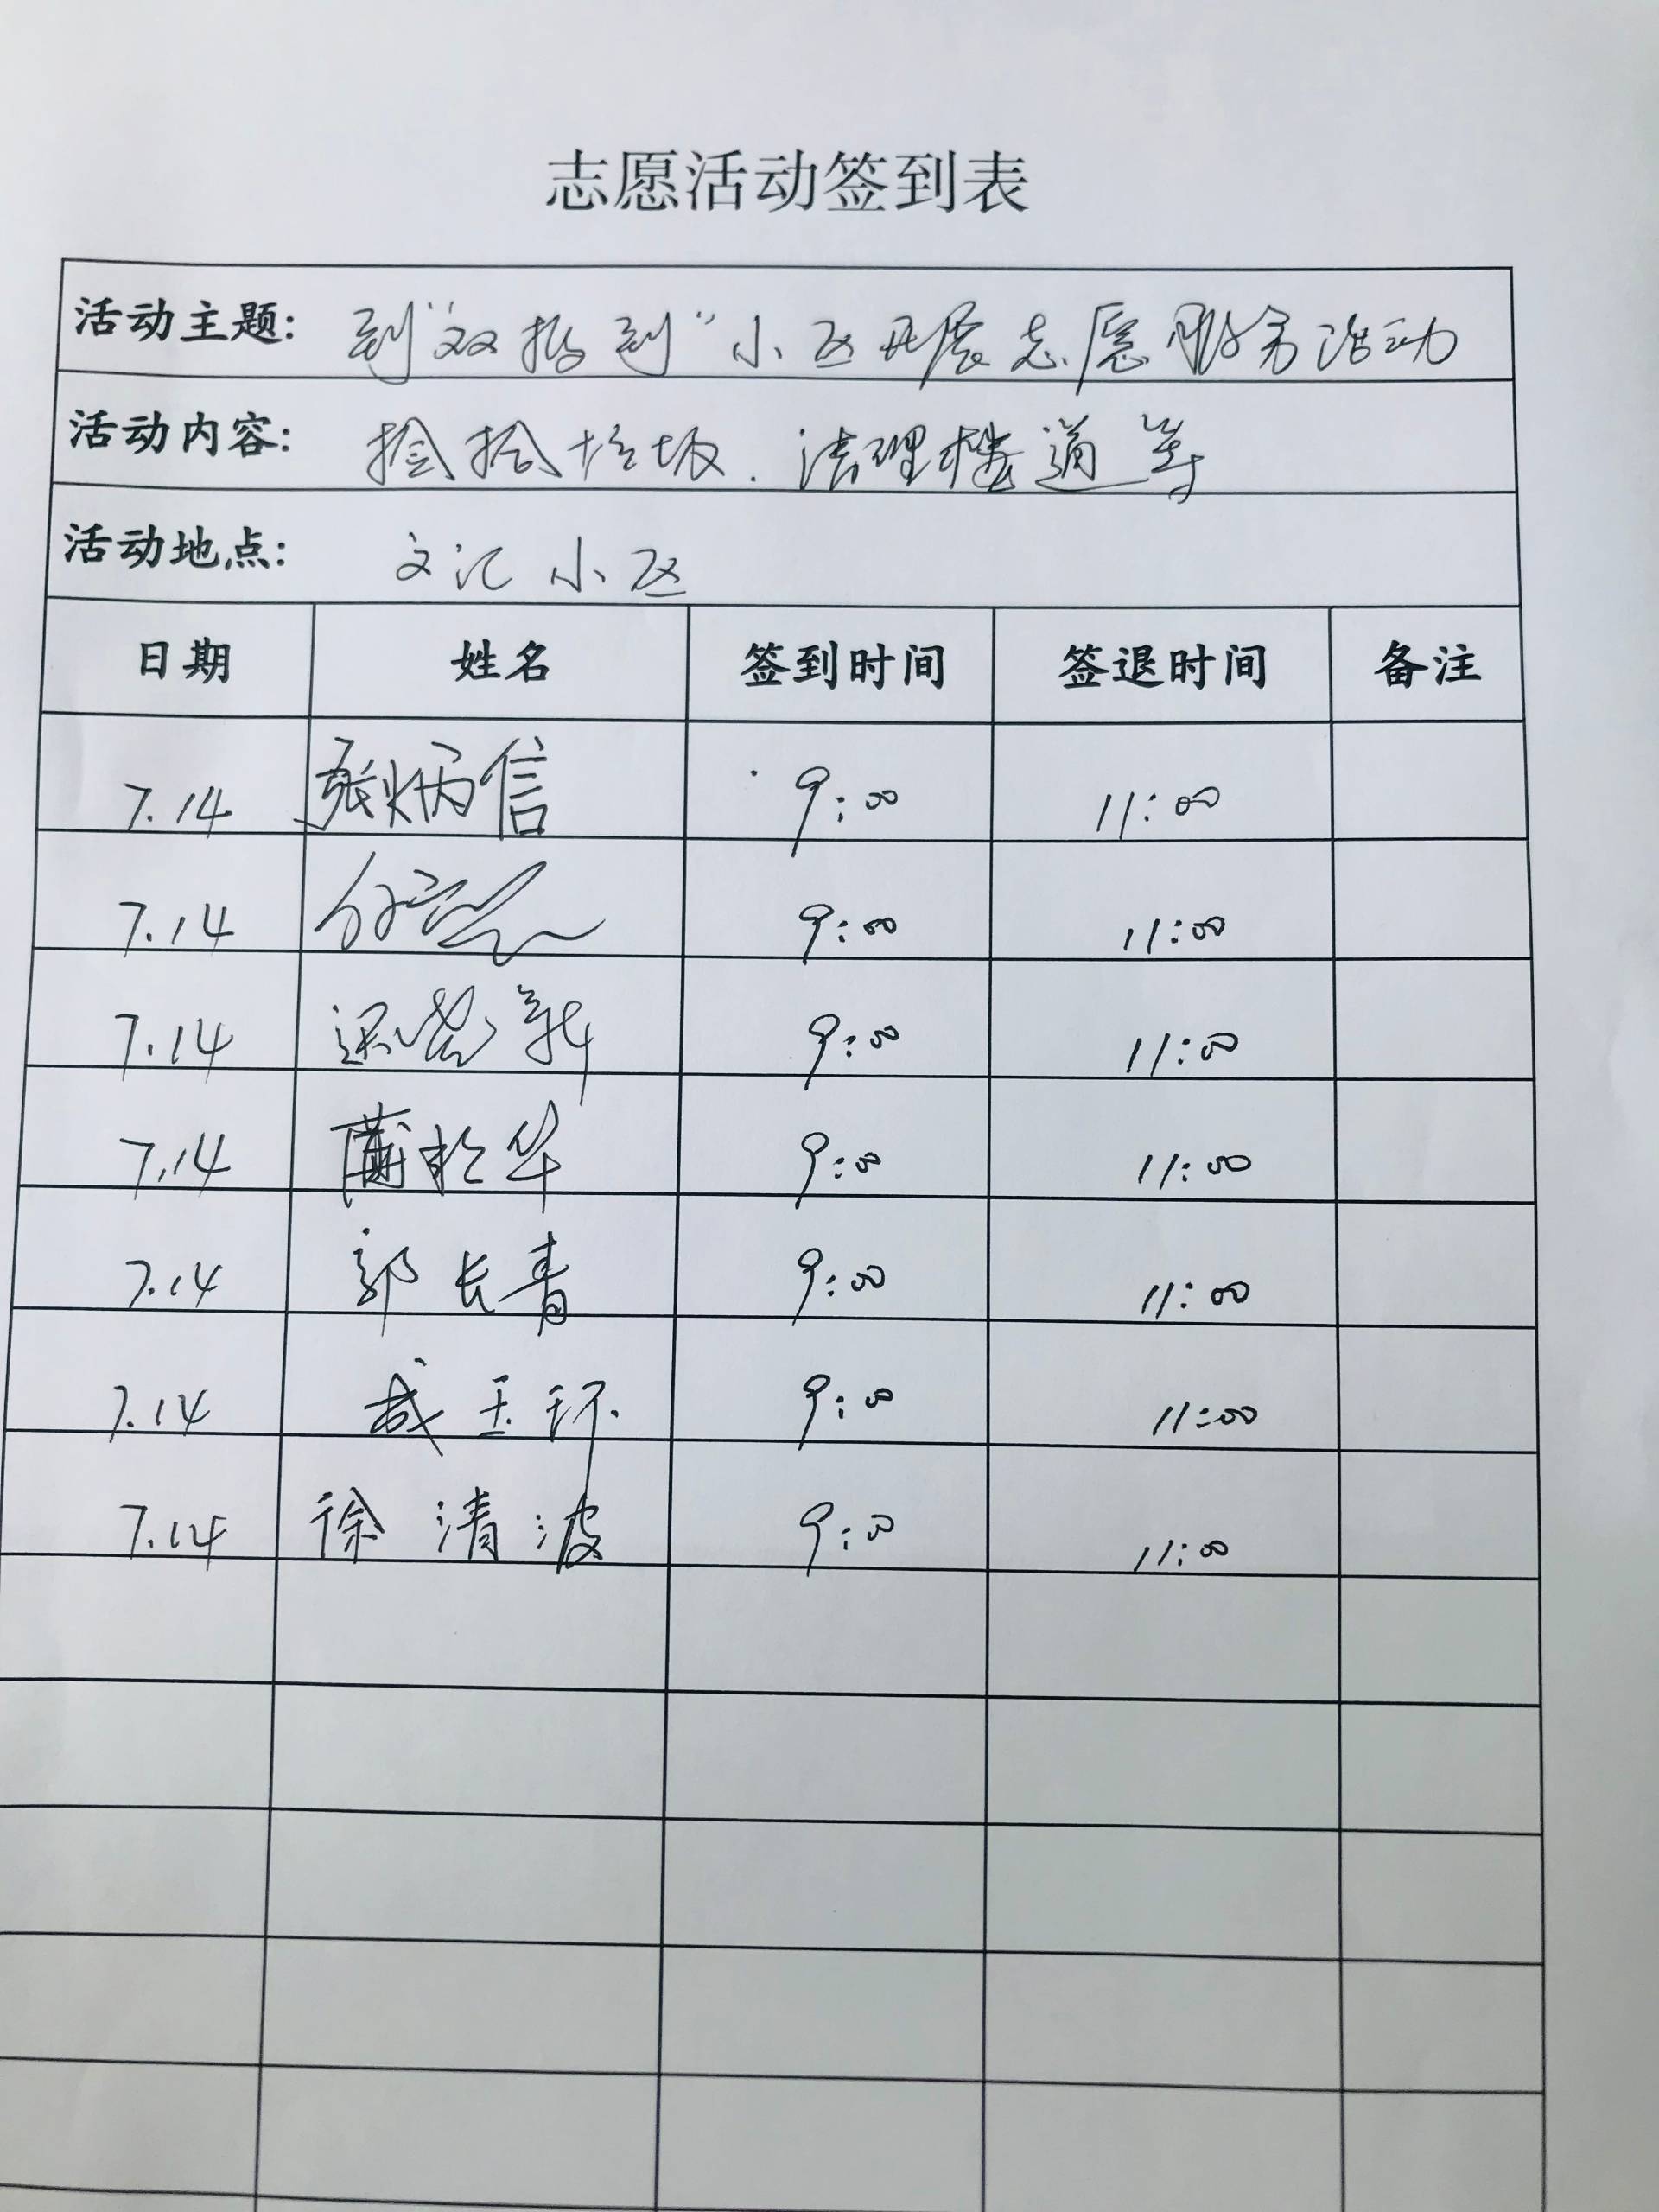 志愿活动签到表
活动主题: 到"双报到"小区开展志愿服务活动
活动内容: 捡拾垃圾. 清理楼道等
活动地点: 文汇小区
日期 姓名 签到时间 签退时间 备注
7.14 张炳信 9:00 11:00
7.14 9:00 11:00
7.14 9:00 11:00
7.14 华 9:00 11:00
7.14 郭长青 9:00 11:00
7.14 成玉环 9:00 11:00
7.14 徐清波 9:00 11:00